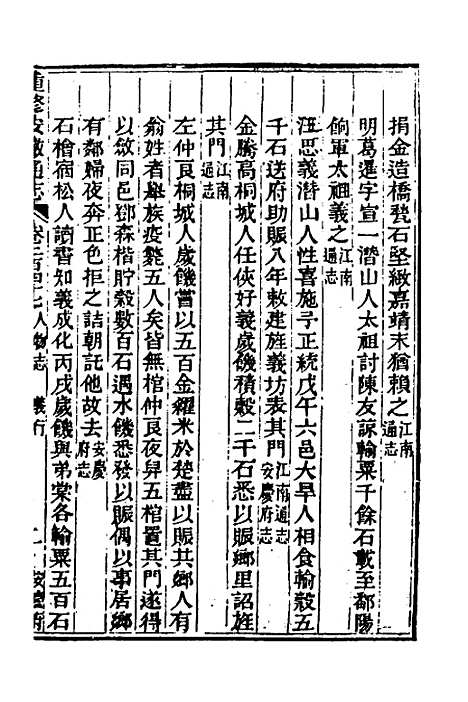 捐金造橋甃石堅緻嘉靖末猶賴之江南通志
明葛暹字宣一潛山人太祖討陳友諒輸粟千餘石載至鄱陽
餉軍太祖義之江南通志
汪思義潛山人性喜施予正統戊午六邑大旱人相食輸穀五
千石送府助賑八年敕建旌義坊表其門江南通志安慶府志
金騰高桐城人任俠好義歲磯積穀二千石悉以賑鄉里詔旌
其門江南通志
左仲良桐城人歲饑嘗以五百金糴米於楚盡以賑其鄉人有
翁姓者舉族疫斃五人矣皆無棺仲良夜舁五棺置其門遂得
以斂同邑鄧森楷貯穀數百石遇水饑悉發以賑偶以事居鄉
有鄰婦夜奔正色拒之詰朝託他故去安慶府志
石檜宿松人讀書知義成化丙戌歲饑與弟棠各輸粟五百石
重修安徽通志 卷二百四十七 人物志 義行 二 安慶府